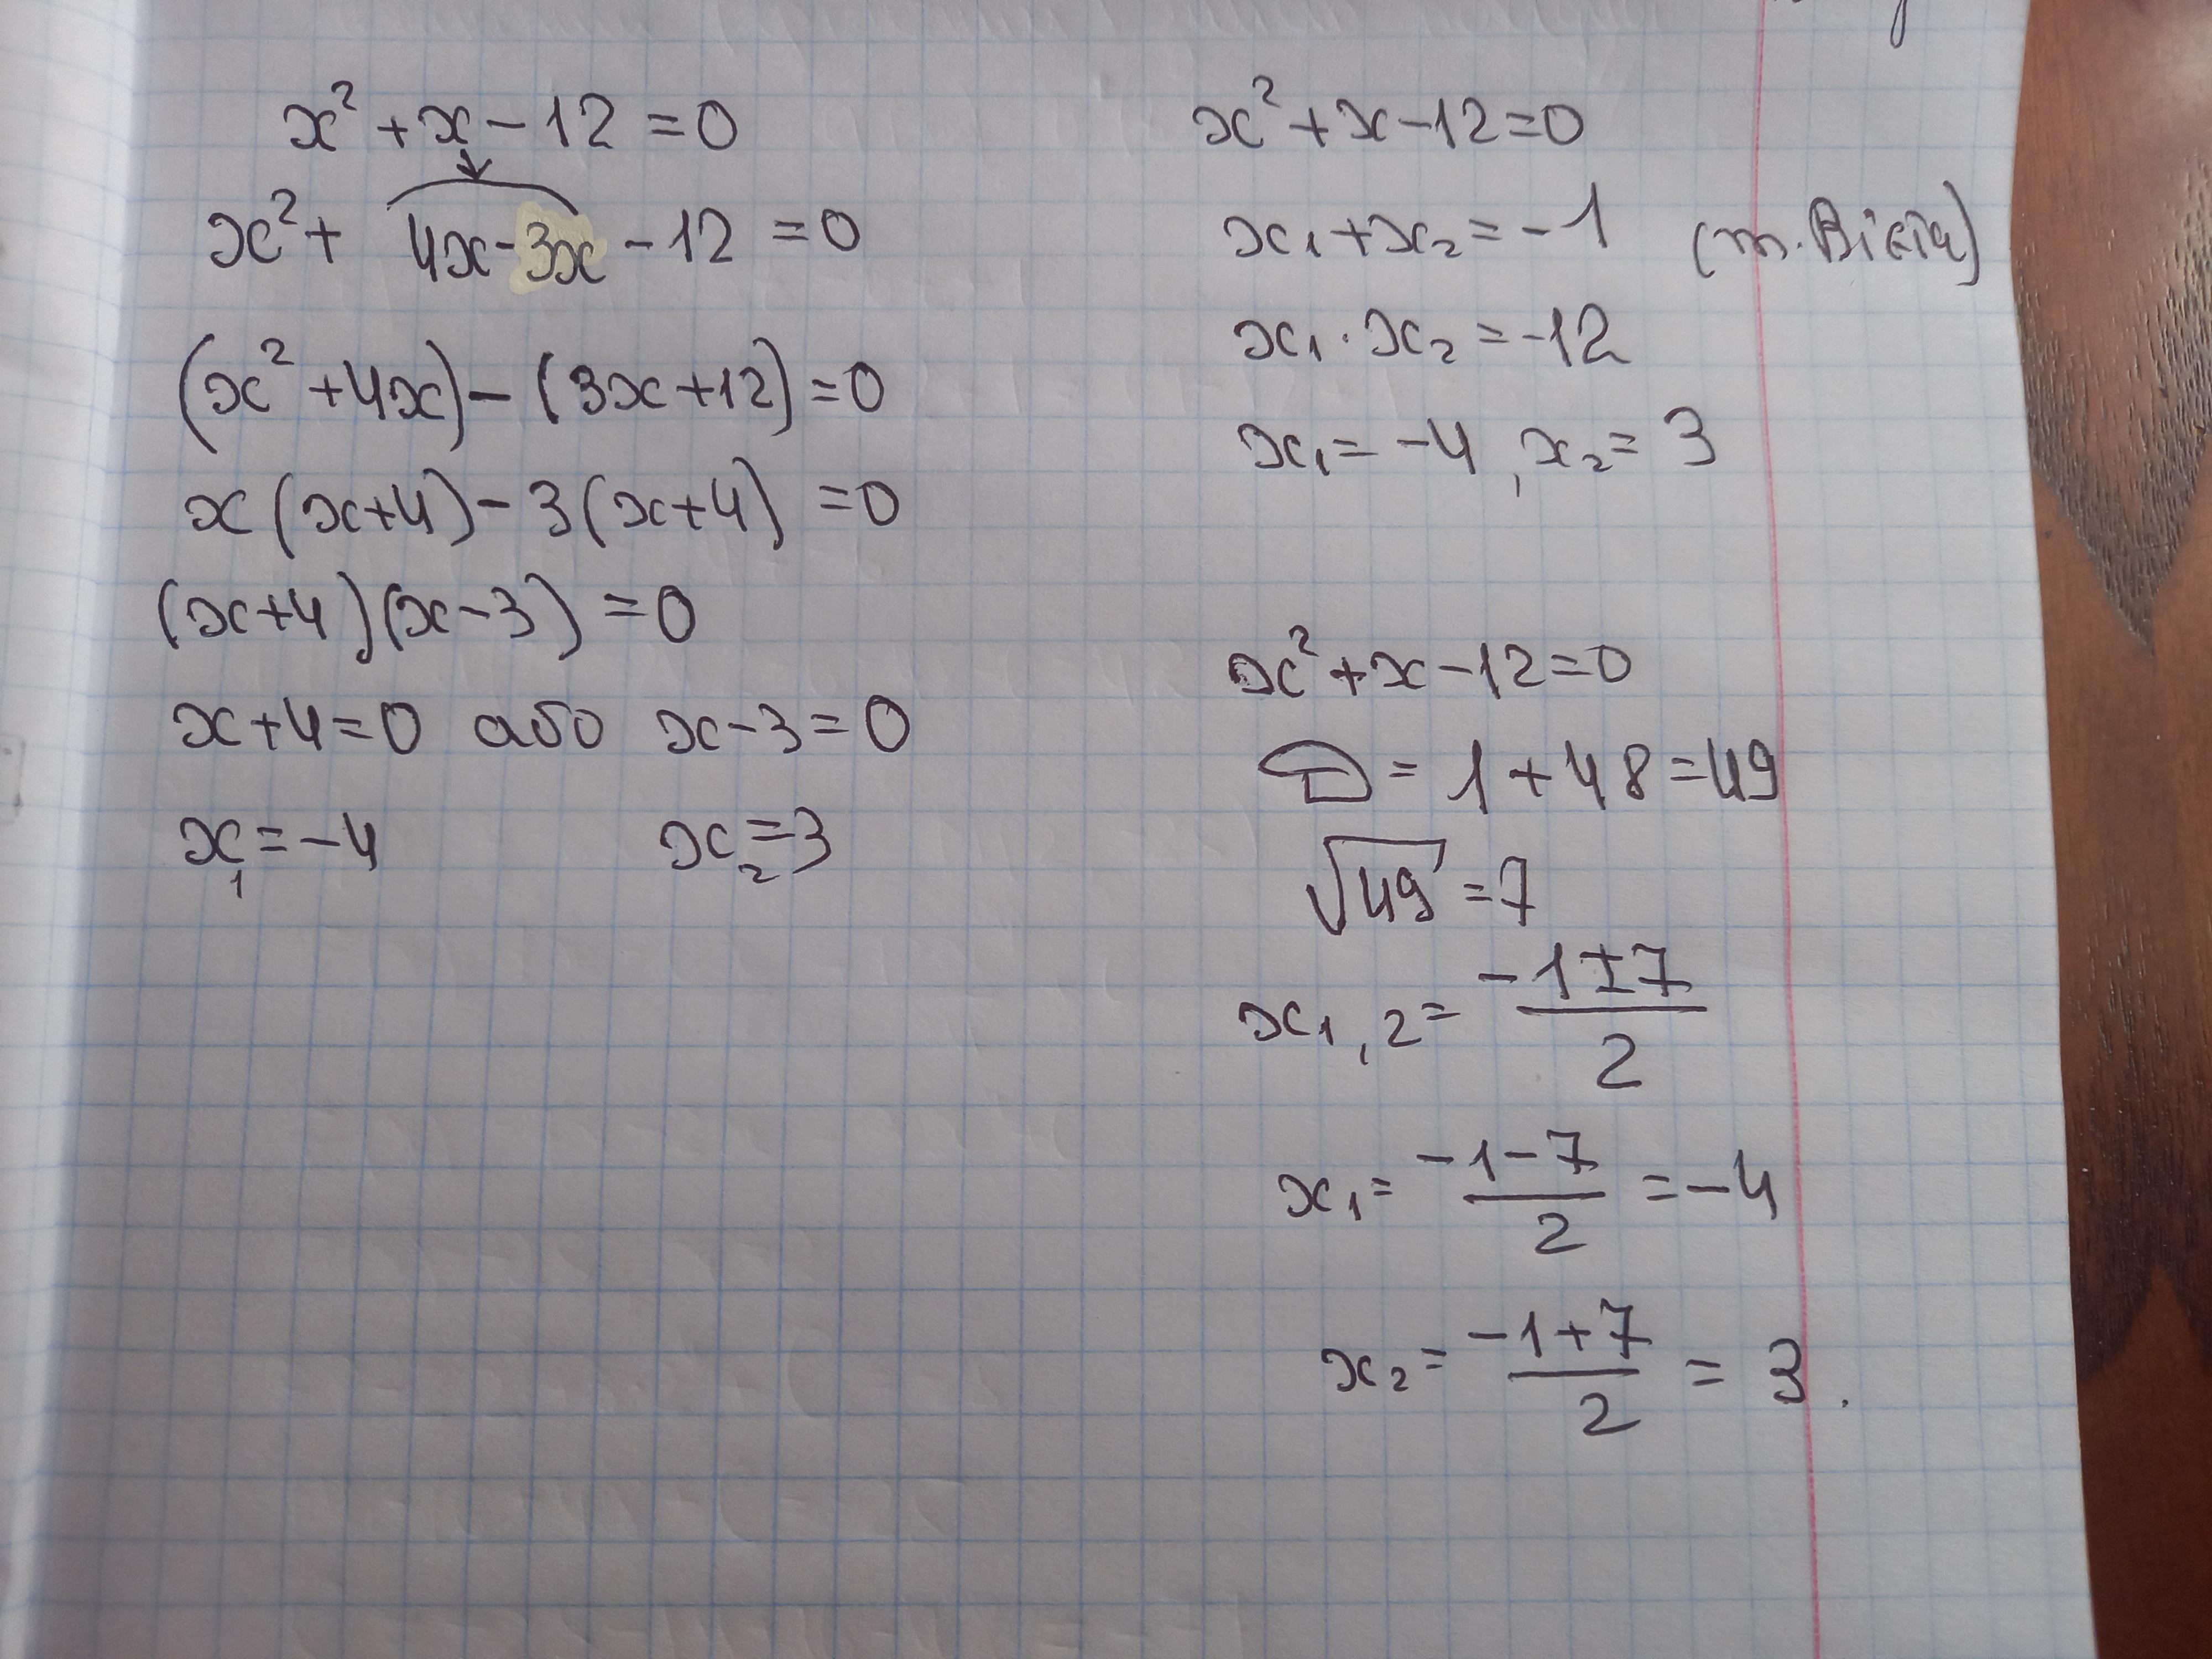 x² + x - 12 = 0
x² + 4x - 3x - 12 = 0
(x² + 4x) - (3x + 12) = 0
x(x+4) - 3(x+4) = 0
(x+4)(x-3) = 0
x+4=0 або x-3=0
x₁ = -4 x₂ = 3
x² + x - 12 = 0
x₁ + x₂ = -1 (т. Вієта)
x₁ · x₂ = -12
x₁ = -4, x₂ = 3
x² + x - 12 = 0
D = 1 + 48 = 49
√49 = 7
x₁,₂ = (-1 ± 7)/2
x₁ = (-1 - 7)/2 = -4
x₂ = (-1 + 7)/2 = 3.